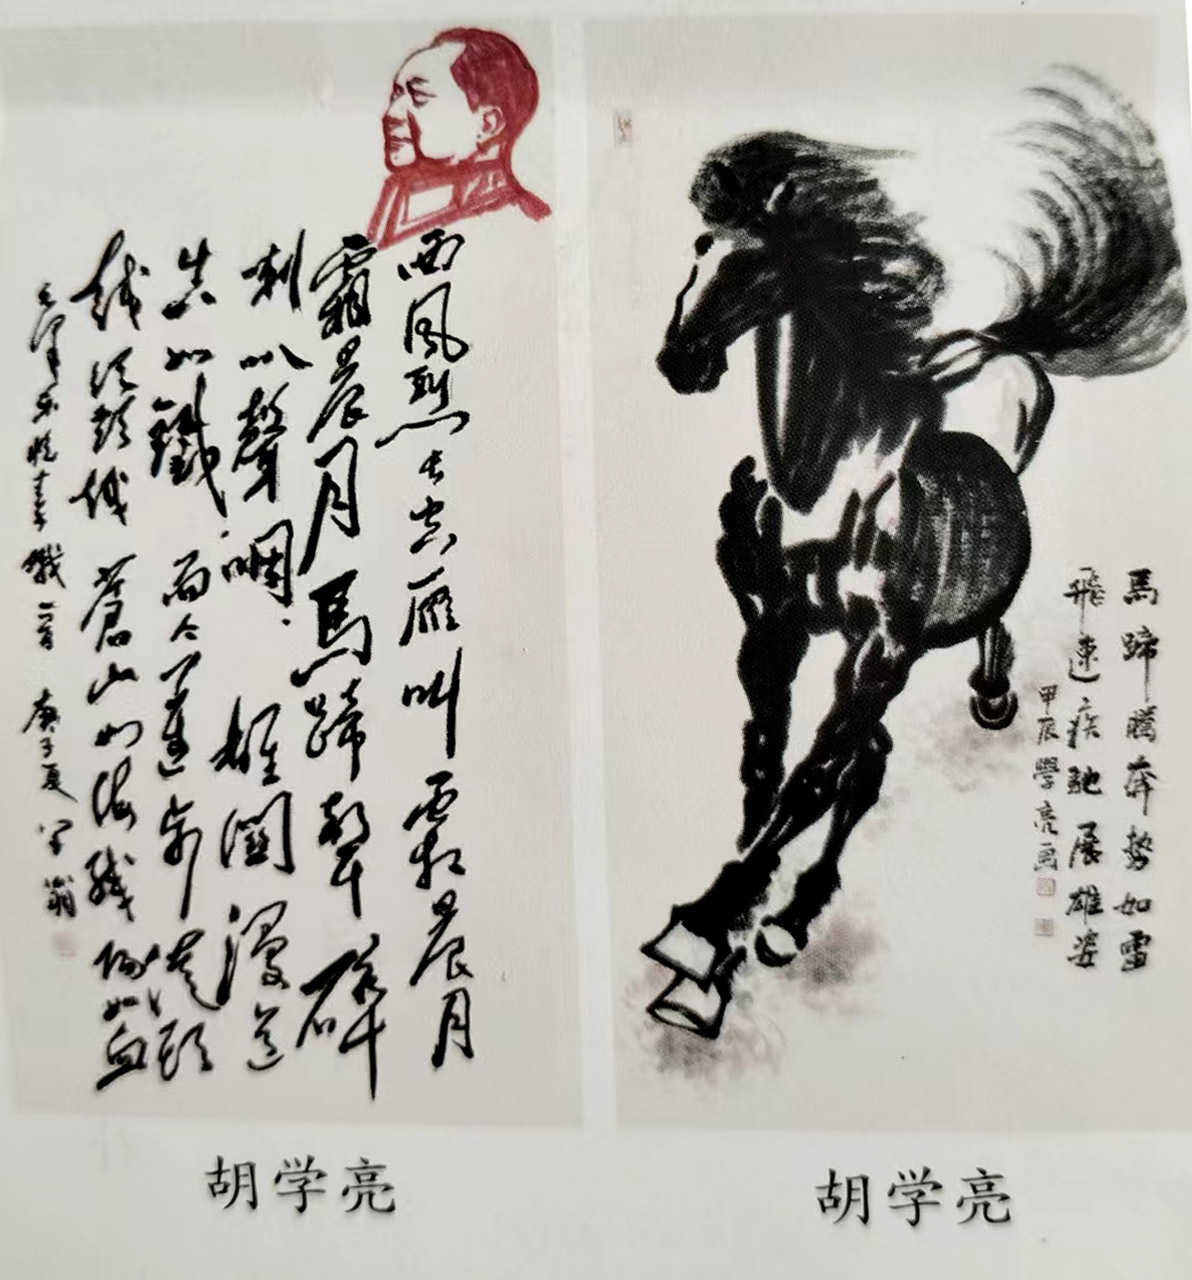 西風烈长空雁叫霜晨月
霜晨月馬蹄聲碎
喇叭聲咽雄関漫道
真如鐵而今邁步從頭
越從頭越蒼山如海殘陽如血
毛澤东憶秦娥一首 庚子夏
馬蹄騰奔勢如雷
飛速疾馳展雄姿
甲辰學亮画
胡学亮
胡学亮